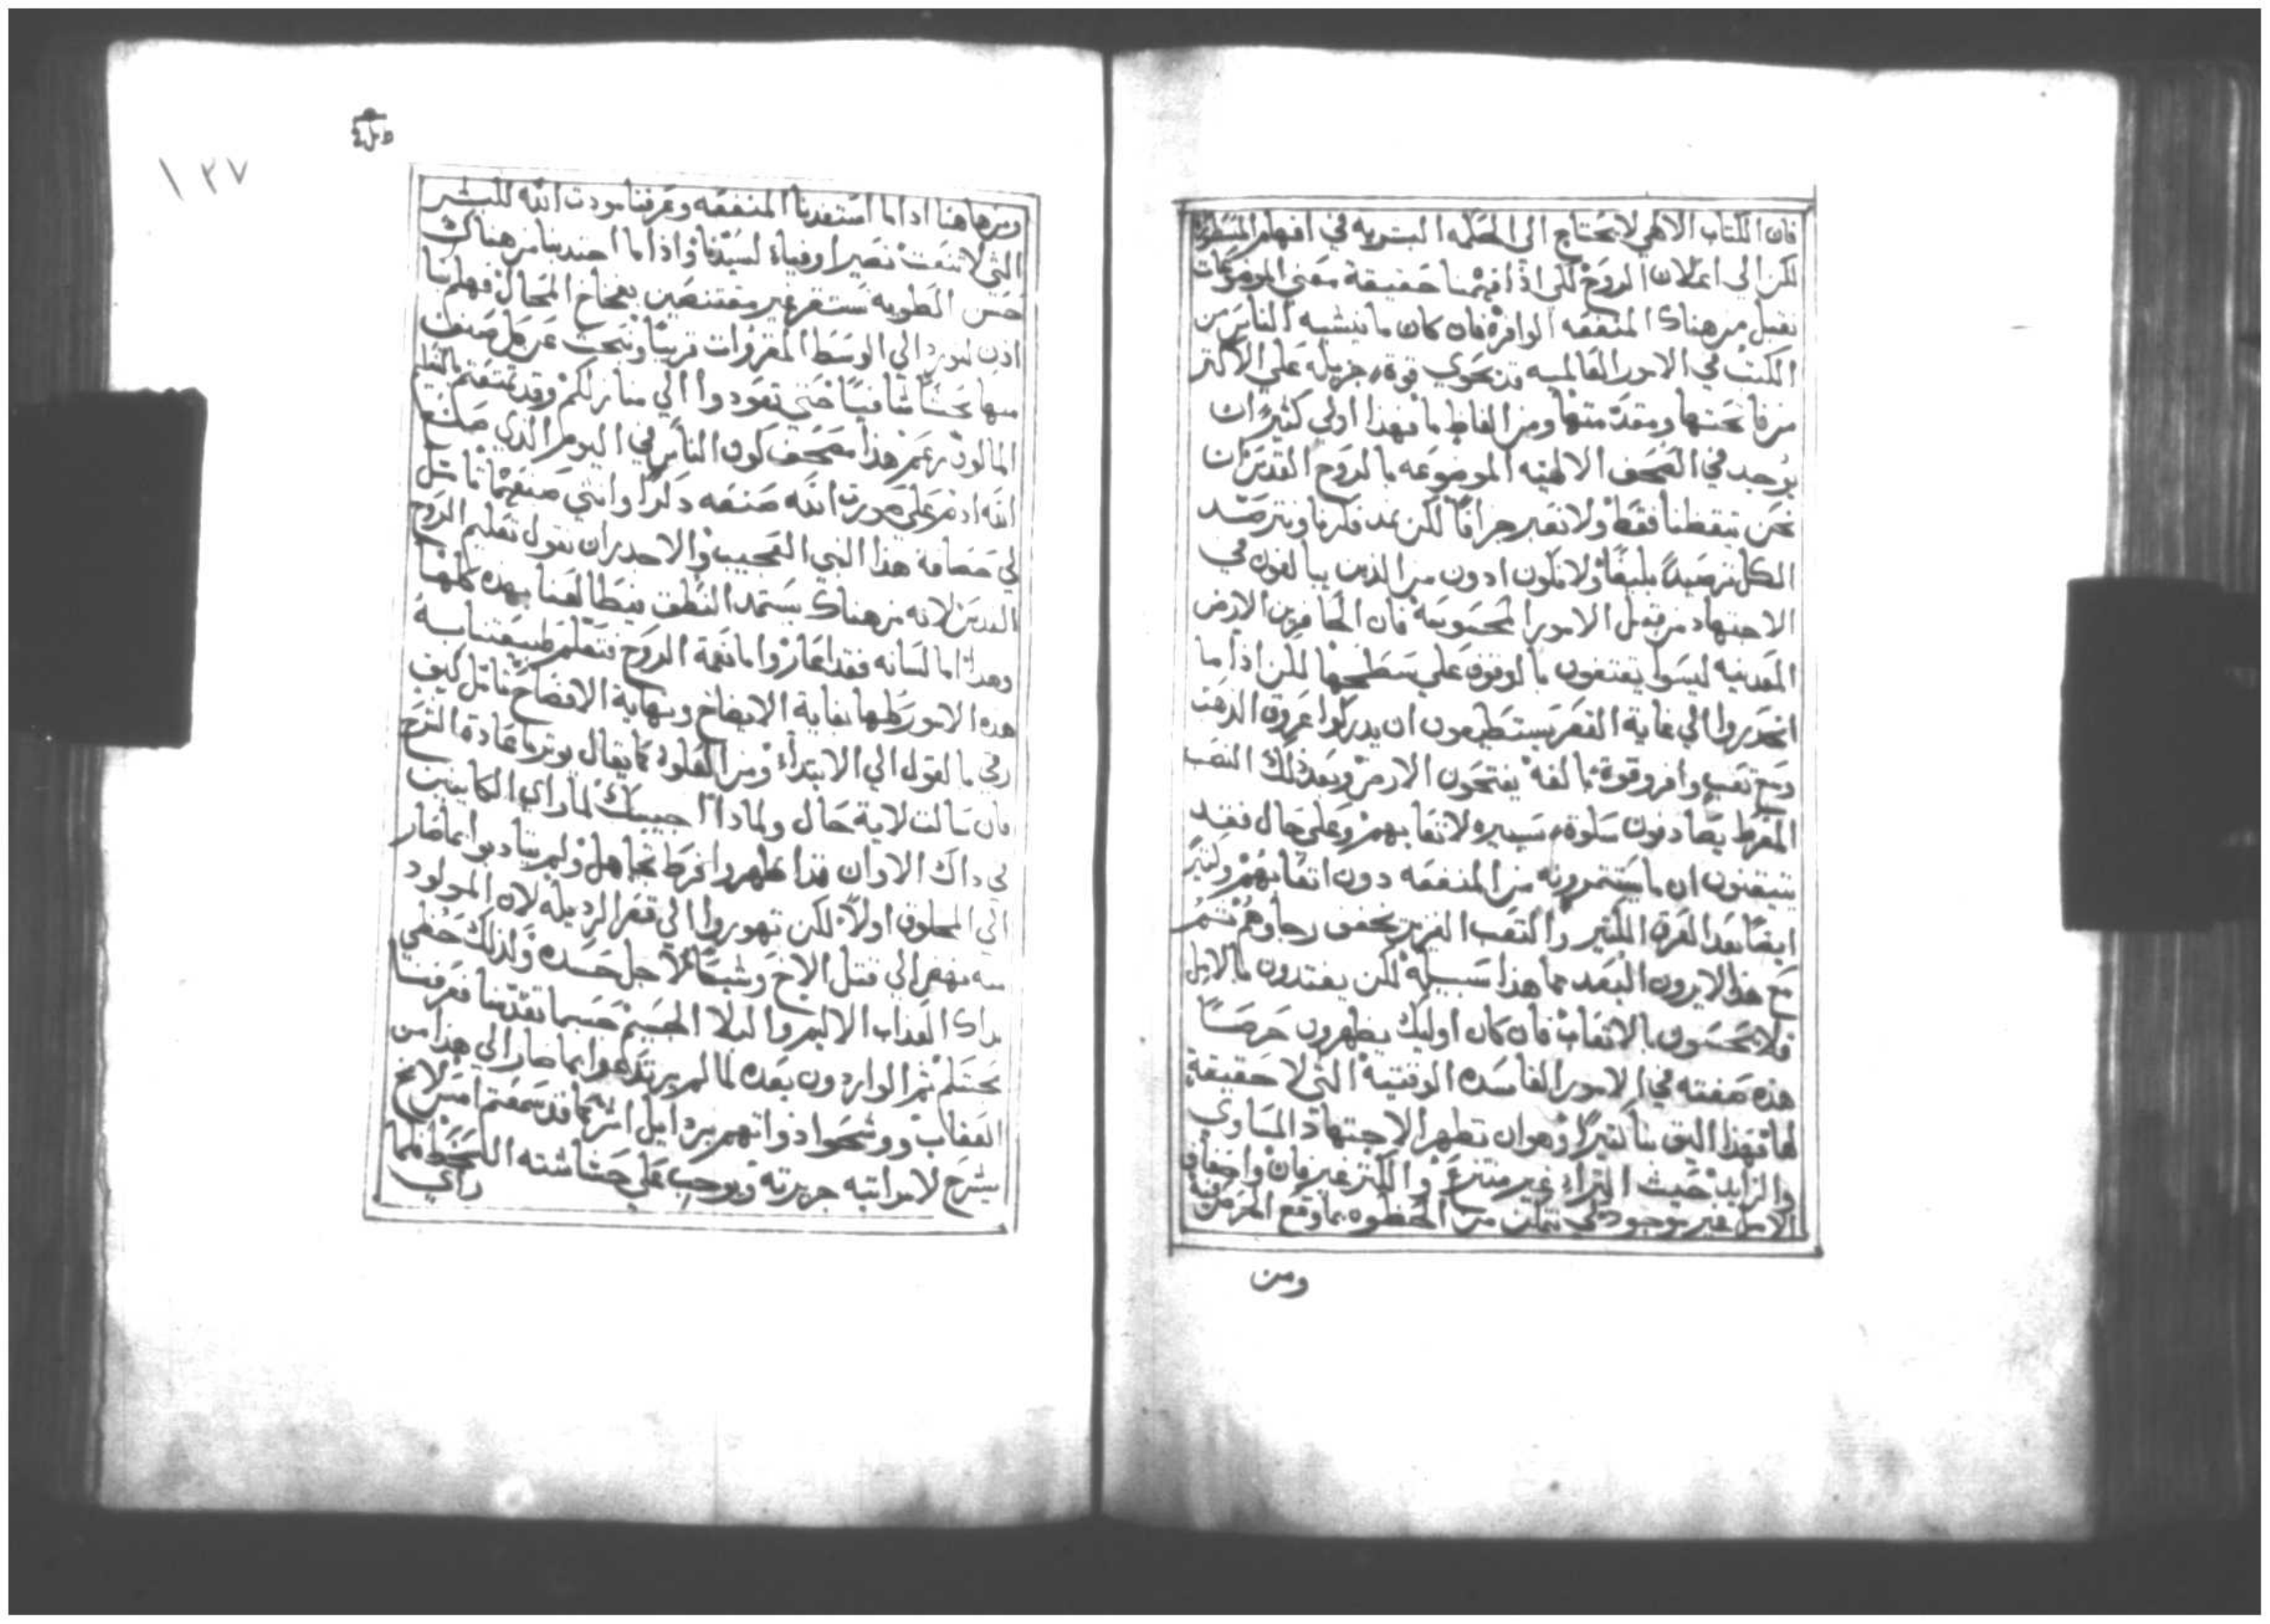 فان الكتاب الالاهي لا يحتاج الى الحكمه البشريه في افهام المسطره
لكن الي اعلان الروح لكي اذا فهمنا حقيقة معني الموضوعات
نقبل من هناك المنفعه الوافرة فان كان ما ينشيه الناس من
الكتب في الامور العالميه قد يحوي قوة جزيلة علي الاكثر
من فاتحتها ومقدمتها ومن الفاظ ما فهذا اولي كثيرًا ان
يوجد في الصحف الالاهيه الموضوعه بالروح القدس ان
نحن تيقظنا فقط ولا نعبر جزافًا لكن نمد فكرنا ونترصد
الكل ترصيدًا بليغًا ولا نكون ادون من الذين يبالغون في
الاجتهاد من قبل الامور المحسوسه فان الحافرين الارض
المعدنيه ليسوا يقتنعون بالوقوف علي سطحها لكن اذا ما
انحدروا الي غاية القعر يستطيعون ان يدركوا عروق الذهب
ومع تعب وافر وقوة بالغه يفتحون الارض وبعد ذلك التعب
المفرط يصادفون سلوة يسيره لاتعابهم وعلي حال فقد
يتيقنون ان ما يستثمرونه من المنفعه دون اتعابهم وكثير
ايضًا بعد العرق الكثير والتعب الغزير يخفق رجاوهم ثم
مع هذا لا يرون البعد مما هذا سبيله لكن يغتدون بالامل
فلا يحسون بالاتعاب فان كان اوليك يظهرون حرصًا
هذه صفته في الامور الفاسده الوقتيه التي لا حقيقة
لها فهذا اليق بنا كثيرًا وهو ان نظهر الاجتهاد المساوي
والزايد حيث الثراء غير منتزع والكنز غير فان واخفاق
الامل غير موجود لكي نتمكن من الحظوه بما وقع الحرص فيه
ومن
١٢٧
ومن هاهنا اذا ما استفدنا المنفعه وعرفنا مودت الله للبشر
التي لا تنعت نصير اوفياء لسيدنا واذا ما اجتدبنا من هناك
حسن الطويه نستقر غير مقتنصين بفخاخ المحال فهلم بنا
اذن لنورد الي الوسط المقروات قريبًا ونبحث عن كل صنف
منها بحثًا شافيًا حتي تعودوا الي منازلكم وقد
المالوف زعم هذا مصحف كون الناس في اليوم الذي صنع
الله ادم علي صورة الله صنعه ذكرًا وانثي صنعهما تامل
لي حصافة هذا النبي العجيب والاجدر ان نقول تعليم الروح
القدس لانه من هناك يستمد النطق فيطالعنا بهذه كلها
وهذا اما لسانه فقد اعاره واما نعمة الروح فتعلم طبيعتنا به
هذه الامور كلها بغاية الايضاح ونهاية الافصاح تامل كيف
رقي بالقول الي الابتداء ومن العلوه كما يقال يوثر ما عادة الشرح
فان سالت لاية حال ولماذا اجيبك لما راي الكاينين
في ذاك الاوان قد اظهروا فرط تجاهل ولم يتادبوا بما صار
الي المخلوق اولًا لكن تهوروا الي قعر الرذيلة لان المولود
منه نهض الي قتل الاخ وشيكًا لاجل حسده ولذلك حظي
بذاك العذاب الاليم والبلا الجسيم حسبما تقدمنا فعرفنا
بحتكم ثم الواردون بعده لما لم يرتدعوا بما صار الي هذا من
العقاب ووشحوا ذواتهم برذايل اشر كما قد سمعتم امس لامخ
يشرح لامراتيه جريرته ويوجب علي حشاشته السخط فلما
راي